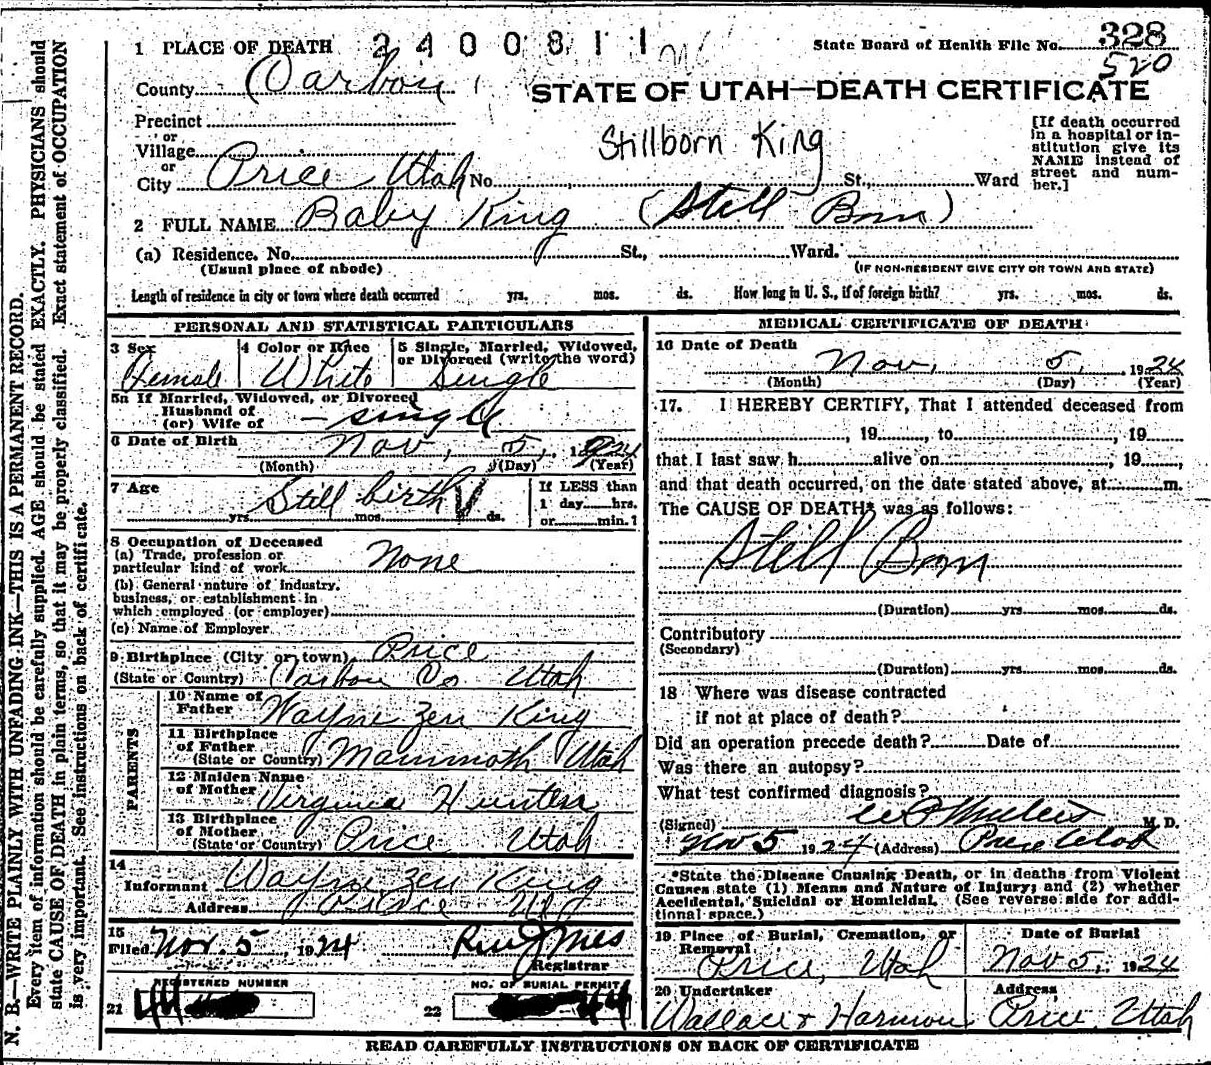 1 PLACE OF DEATH 2400811
State Board of Health File No. 328
520
County Carbon
STATE OF UTAH—DEATH CERTIFICATE
Precinct
or
Village
or
City Price Utah No. St., Ward
Stillborn King
[If death occurred
in a hospital or in-
stitution give its
NAME instead of
street and num-
ber.]
2 FULL NAME Baby King (Still Born)
(a) Residence. No. St., Ward.
(Usual place of abode) (IF NON-RESIDENT GIVE CITY OR TOWN AND STATE)
Length of residence in city or town where death occurred yrs. mos. ds. How long in U. S., if of foreign birth? yrs. mos. ds.
PERSONAL AND STATISTICAL PARTICULARS
3 Sex Female
4 Color or Race White
5 Single, Married, Widowed,
or Divorced (write the word)
Single
5a If Married, Widowed, or Divorced
Husband of
(or) Wife of — single
6 Date of Birth Nov. 5, 1924
(Month) (Day) (Year)
7 Age Still birth
yrs. mos. ds.
If LESS than
1 day hrs.
or min. ?
8 Occupation of Deceased
(a) Trade, profession or
particular kind of work None
(b) General nature of industry,
business, or establishment in
which employed (or employer)
(c) Name of Employer
9 Birthplace (City or town) Price
(State or Country) Carbon Co Utah
PARENTS
10 Name of
Father Wayne Zen King
11 Birthplace
of Father
(State or Country) Mammoth Utah
12 Maiden Name
of Mother Virginia Hunter
13 Birthplace
of Mother
(State or Country) Price Utah
14
Informant Wayne Zen King
Address Price Ut
15
Filed Nov. 5, 1924
Registrar
REGISTERED NUMBER
21 44
NO. OF BURIAL PERMIT
22 44
MEDICAL CERTIFICATE OF DEATH
16 Date of Death
Nov. 5, 1924
(Month) (Day) (Year)
17. I HEREBY CERTIFY, That I attended deceased from
, 19 , to , 19
that I last saw h alive on , 19 ,
and that death occurred, on the date stated above, at m.
The CAUSE OF DEATH* was as follows:
Still Born
(Duration) yrs. mos. ds.
Contributory
(Secondary)
(Duration) yrs. mos. ds.
18 Where was disease contracted
if not at place of death?
Did an operation precede death? Date of
Was there an autopsy?
What test confirmed diagnosis?
(Signed) M. D.
Nov 5 1924 (Address) Price Utah
*State the Disease Causing Death, or in deaths from Violent
Causes state (1) Means and Nature of Injury; and (2) whether
Accidental, Suicidal or Homicidal. (See reverse side for addi-
tional space.)
19 Place of Burial, Cremation, or
Removal
Price, Utah
Date of Burial
Nov 5, 1924
20 Undertaker
Wallace & Harmon
Address
Price, Utah
READ CAREFULLY INSTRUCTIONS ON BACK OF CERTIFICATE
N. B.—WRITE PLAINLY WITH UNFADING INK—THIS IS A PERMANENT RECORD.
Every item of information should be carefully supplied. AGE should be stated EXACTLY. PHYSICIANS should
state CAUSE OF DEATH in plain terms, so that it may be properly classified. Exact statement of OCCUPATION
is very important. See instructions on back of certificate.